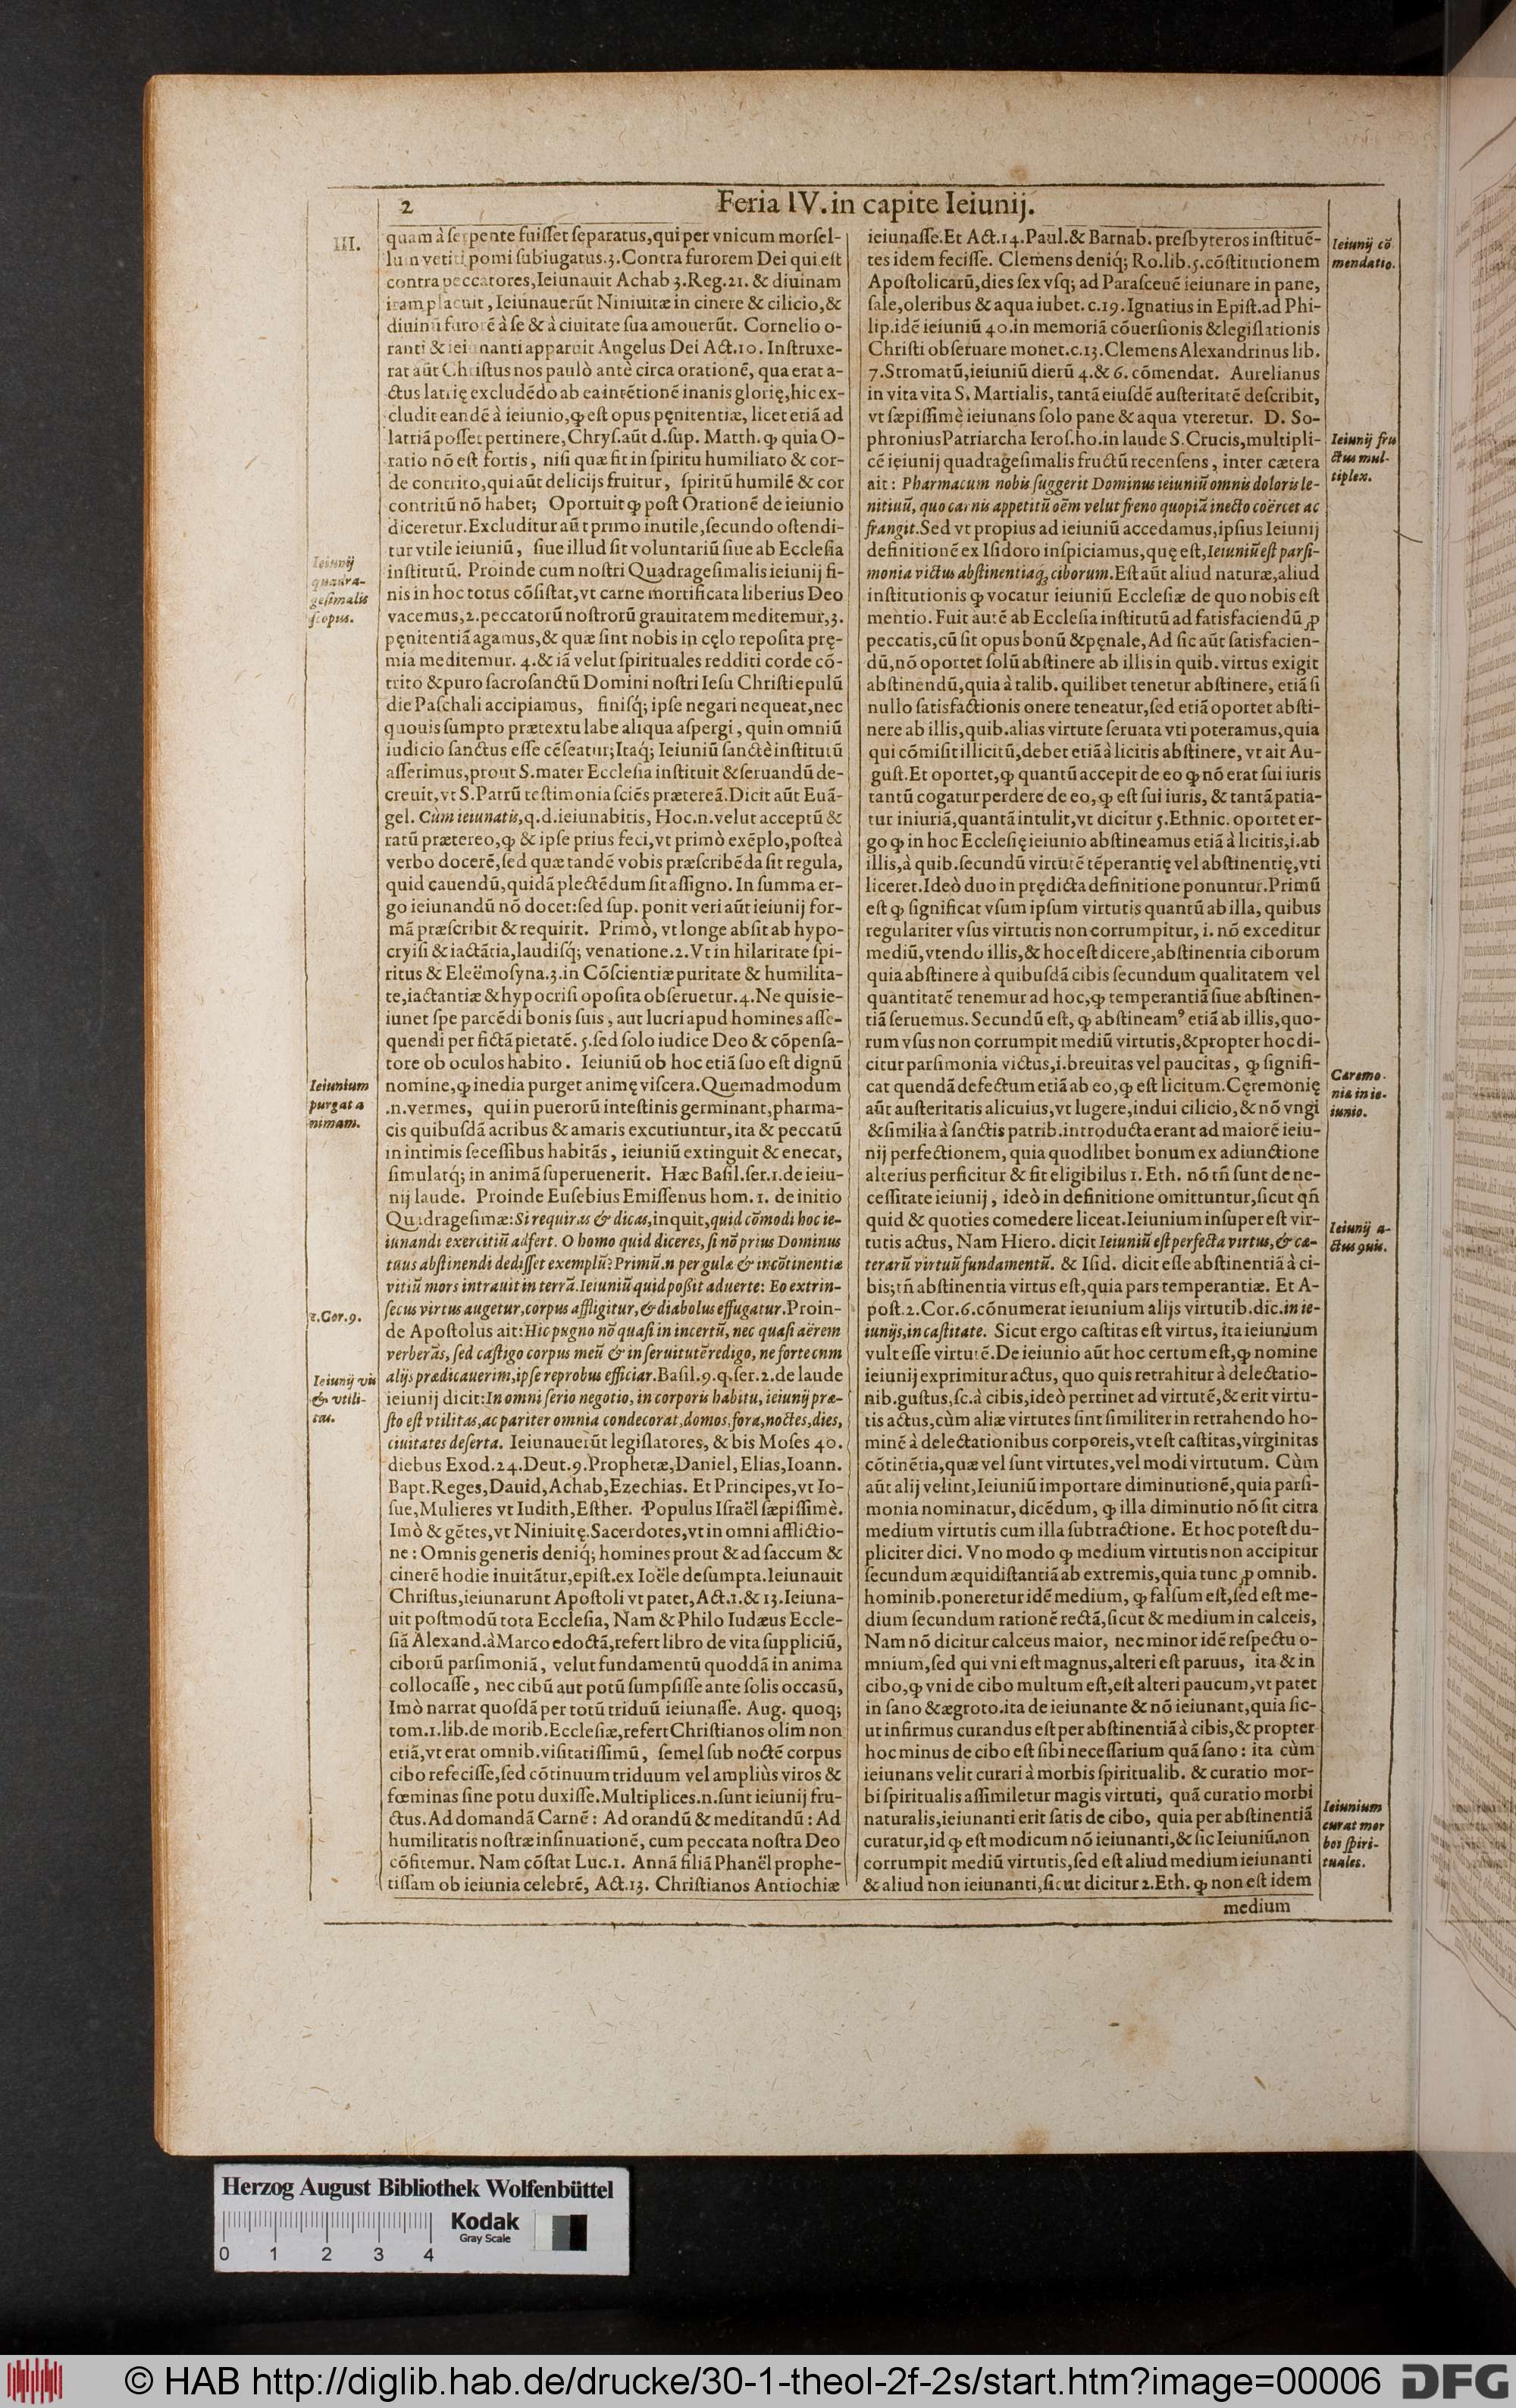 2
Feria IV. in capite Ieiunij.
III.
quam à serpente fuiſſet ſeparatus, qui per vnicum morſel-
lum vetiti pomi ſubiugatus. 3. Contra furorem Dei qui eſt
contra peccatores, Ieiunauit Achab 3. Reg. 21. & diuinam
iram placuit, Ieiunauerūt Niniuitæ in cinere & cilicio, &
diuinū furorē à ſe & à ciuitate ſua amouerūt. Cornelio o-
ranti & ieiunanti apparuit Angelus Dei Act. 10. Inſtruxe-
rat aūt Chriſtus nos paulò antè circa orationē, qua erat a-
ctus latrię excludēdo ab ea intētionē inanis glorię, hic ex-
cludit eandē à ieiunio, ꝙ eſt opus pęnitentiæ, licet etiā ad
latriā poſſet pertinere, Chryſ. aūt d. ſup. Matth. ꝙ quia O-
ratio nō eſt fortis, niſi quæ fit in ſpiritu humiliato & cor-
de contrito, qui aūt delicijs fruitur, ſpiritū humilē & cor
contritū nō habet; Oportuit ꝙ poſt Orationē de ieiunio
diceretur. Excluditur aūt primo inutile, ſecundo oſtendi-
tur vtile ieiuniū, ſiue illud ſit voluntariū ſiue ab Eccleſia
inſtitutū. Proinde cum noſtri Quadrageſimalis ieiunij fi-
nis in hoc totus cōſiſtat, vt carne mortificata liberius Deo
vacemus, 2. peccatorū noſtrorū grauitatem meditemur, 3.
pęnitentiā agamus, & quæ ſint nobis in cęlo repoſita prę-
mia meditemur. 4. & iā velut ſpirituales redditi corde cō-
trito & puro ſacroſanctū Domini noſtri Ieſu Chriſti epulū
die Paſchali accipiamus, finiſq́; ipſe negari nequeat, nec
quouis ſumpto prætextu labe aliqua aſpergi, quin omniū
iudicio ſanctus eſſe cēſeatur; Itaq́; Ieiuniū ſanctè inſtitutū
aſſerimus, prout S. mater Eccleſia inſtituit & ſeruandū de-
creuit, vt S. Patrū teſtimonia ſciēs prætereā. Dicit aūt Euā-
gel. Cùm ieiunatis, q. d. ieiunabitis, Hoc. n. velut acceptū &
ratū prætereo, ꝙ & ipſe prius feci, vt primò exēplo, poſteà
verbo docerē, ſed quæ tandē vobis præſcribēda ſit regula,
quid cauendū, quidā plectēdum ſit aſſigno. In ſumma er-
go ieiunandū nō docet: ſed ſup. ponit veri aūt ieiunij for-
mā præſcribit & requirit. Primò, vt longe abſit ab hypo-
cryiſi & iactātia, laudiſq́; venatione. 2. Vt in hilaritate ſpi-
ritus & Eleëmoſyna. 3. in Cōſcientiæ puritate & humilita-
te, iactantiæ & hypocriſi opoſita obſeruetur. 4. Ne quis ie-
iunet ſpe parcēdi bonis ſuis, aut lucri apud homines aſſe-
quendi per fictā pietatē. 5. ſed ſolo iudice Deo & cōpenſa-
tore ob oculos habito. Ieiuniū ob hoc etiā ſuo eſt dignū
nomine, ꝙ inedia purget animę viſcera. Quemadmodum
.n. vermes, qui in puerorū inteſtinis germinant, pharma-
cis quibuſdā acribus & amaris excutiuntur, ita & peccatū
in intimis ſeceſſibus habitās, ieiuniū extinguit & enecat,
ſimulatq́; in animā ſuperuenerit. Hæc Baſil. ſer. 1. de ieiu-
nij laude. Proinde Euſebius Emiſſenus hom. 1. de initio
Quadrageſimæ: Si requiras & dicas, inquit, quid cōmodi hoc ie-
iunandi exercitiū adfert. O homo quid diceres, ſi nō prius Dominus
tuus abſtinendi dediſſet exemplū? Primū. n per gulæ & incōtinentiæ
vitiū mors intrauit in terrā. Ieiuniū quid poßit aduerte: Eo extrin-
ſecus virtus augetur, corpus affligitur, & diabolus effugatur. Proin-
de Apoſtolus ait: Hic pugno nō quaſi in incertū, nec quaſi aërem
verberās, ſed caſtigo corpus meū & in ſeruitutē redigo, ne forte cnm
alijs prædicauerim, ipſe reprobus efficiar. Baſil. 9. q. ſer. 2. de laude
ieiunij dicit: In omni ſerio negotio, in corporis habitu, ieiunij præ-
ſto eſt vtilitas, ac pariter omnia condecorat, domos, fora, noctes, dies,
ciuitates deſerta. Ieiunauerūt legiſlatores, & bis Moſes 40.
diebus Exod. 24. Deut. 9. Prophetæ, Daniel, Elias, Ioann.
Bapt. Reges, Dauid, Achab, Ezechias. Et Principes, vt Io-
ſue, Mulieres vt Iudith, Eſther. Populus Iſraël ſæpiſſimè.
Imò & gētes, vt Niniuitę. Sacerdotes, vt in omni afflictio-
ne: Omnis generis deniq́; homines prout & ad ſaccum &
cinerē hodie inuitātur, epiſt. ex Ioële deſumpta. Ieiunauit
Chriſtus, ieiunarunt Apoſtoli vt patet, Act. 1. & 13. Ieiuna-
uit poſtmodū tota Eccleſia, Nam & Philo Iudæus Eccle-
ſiā Alexand. à Marco edoctā, refert libro de vita ſuppliciū,
ciborū parſimoniā, velut fundamentū quoddā in anima
collocaſſe, nec cibū aut potū ſumpſiſſe ante ſolis occasū,
Imò narrat quoſdā per totū triduū ieiunaſſe. Aug. quoq;
tom. 1. lib. de morib. Eccleſiæ, refert Chriſtianos olim non
etiā, vt erat omnib. viſitatiſſimū, ſemel ſub noctē corpus
cibo refeciſſe, ſed cōtinuum triduum vel ampliùs viros &
fœminas ſine potu duxiſſe. Multiplices. n. ſunt ieiunij fru-
ctus. Ad domandā Carnē: Ad orandū & meditandū: Ad
humilitatis noſtræ inſinuationē, cum peccata noſtra Deo
cōfitemur. Nam cōſtat Luc. 1. Annā filiā Phanël prophe-
tiſſam ob ieiunia celebrē, Act. 13. Chriſtianos Antiochiæ
Ieiunij
quadra-
geſimalis
ſcopus.
Ieiunium
purgat a
nimam.
1. Cor. 9.
Ieiunij vis
& vtili-
tas.
ieiunaſſe. Et Act. 14. Paul. & Barnab. preſbyteros inſtituē-
tes idem feciſſe. Clemens deniq́; Ro. lib. 5. cōſtitutionem
Apoſtolicarū, dies ſex vſq; ad Paraſceuē ieiunare in pane,
ſale, oleribus & aqua iubet. c. 19. Ignatius in Epiſt. ad Phi-
lip. idē ieiuniū 40. in memoriā cōuerſionis & legiſlationis
Chriſti obſeruare monet. c. 13. Clemens Alexandrinus lib.
7. Stromatū, ieiuniū dierū 4. & 6. cōmendat. Aurelianus
in vita vita S. Martialis, tantā eiuſdē auſteritatē deſcribit,
vt ſæpiſſimè ieiunans ſolo pane & aqua vteretur. D. So-
phronius Patriarcha Ieroſ. ho. in laude S. Crucis, multipli-
cē ieiunij quadrageſimalis fructū recenſens, inter cætera
ait: Pharmacum nobis ſuggerit Dominus ieiuniū omnis doloris le-
nitiuū, quo carnis appetitū oēm velut freno quopiā inecto coërcet ac
frangit. Sed vt propius ad ieiuniū accedamus, ipſius Ieiunij
definitionē ex Iſidoro inſpiciamus, quę eſt, Ieiuniū eſt parſi-
monia victus abſtinentiaq́; ciborum. Eſt aūt aliud naturæ, aliud
inſtitutionis ꝙ vocatur ieiuniū Eccleſiæ de quo nobis eſt
mentio. Fuit autē ab Eccleſia inſtitutū ad ſatisfaciendū ꝓ
peccatis, cū ſit opus bonū & pęnale, Ad ſic aūt ſatisfacien-
dū, nō oportet ſolū abſtinere ab illis in quib. virtus exigit
abſtinendū, quia à talib. quilibet tenetur abſtinere, etiā ſi
nullo ſatisfactionis onere teneatur, ſed etiā oportet abſti-
nere ab illis, quib. alias virtute ſeruata vti poteramus, quia
qui cōmiſit illicitū, debet etiā à licitis abſtinere, vt ait Au-
guſt. Et oportet, ꝙ quantū accepit de eo ꝙ nō erat ſui iuris
tantū cogatur perdere de eo, ꝙ eſt ſui iuris, & tantā patia-
tur iniuriā, quantā intulit, vt dicitur 5. Ethnic. oportet er-
go ꝙ in hoc Eccleſię ieiunio abſtineamus etiā à licitis, i. ab
illis, à quib. ſecundū virtutē tēperantię vel abſtinentię, vti
liceret. Ideò duo in prędicta definitione ponuntur. Primū
eſt ꝙ ſignificat vſum ipſum virtutis quantū ab illa, quibus
regulariter vſus virtutis non corrumpitur, i. nō exceditur
mediū, vtendo illis, & hoc eſt dicere, abſtinentia ciborum
quia abſtinere à quibuſdā cibis ſecundum qualitatem vel
quantitatē tenemur ad hoc, ꝙ temperantiā ſiue abſtinen-
tiā ſeruemus. Secundū eſt, ꝙ abſtineamꝰ etiā ab illis, quo-
rum vſus non corrumpit mediū virtutis, & propter hoc di-
citur parſimonia victus, i. breuitas vel paucitas, ꝙ ſignifi-
cat quendā defectum etiā ab eo, ꝙ eſt licitum. Cęremonię
aūt auſteritatis alicuius, vt lugere, indui cilicio, & nō vngi
& ſimilia à ſanctis patrib. introducta erant ad maiorē ieiu-
nij perfectionem, quia quodlibet bonum ex adiunctione
alterius perficitur & fit eligibilus 1. Eth. nō tñ ſunt de ne-
ceſſitate ieiunij, ideò in definitione omittuntur, ſicut qñ
quid & quoties comedere liceat. Ieiunium inſuper eſt vir-
tutis actus, Nam Hiero. dicit Ieiuniū eſt perfecta virtus, & cæ-
terarū virtuū fundamentū. & Iſid. dicit eſſe abſtinentiā à ci-
bis; tñ abſtinentia virtus eſt, quia pars temperantiæ. Et A-
poſt. 2. Cor. 6. cōnumerat ieiunium alijs virtutib. dic. in ie-
iunijs, in caſtitate. Sicut ergo caſtitas eſt virtus, ita ieiunium
vult eſſe virtutē. De ieiunio aūt hoc certum eſt, ꝙ nomine
ieiunij exprimitur actus, quo quis retrahitur à delectatio-
nib. guſtus, ſc. à cibis, ideò pertinet ad virtutē, & erit virtu-
tis actus, cùm aliæ virtutes ſint ſimiliter in retrahendo ho-
minē à delectationibus corporeis, vt eſt caſtitas, virginitas
cōtinētia, quæ vel ſunt virtutes, vel modi virtutum. Cùm
aūt alij velint, Ieiuniū importare diminutionē, quia parſi-
monia nominatur, dicēdum, ꝙ illa diminutio nō ſit citra
medium virtutis cum illa ſubtractione. Et hoc poteſt du-
pliciter dici. Vno modo ꝙ medium virtutis non accipitur
ſecundum æquidiſtantiā ab extremis, quia tunc ꝓ omnib.
hominib. poneretur idē medium, ꝙ falſum eſt, ſed eſt me-
dium ſecundum rationē rectā, ſicut & medium in calceis,
Nam nō dicitur calceus maior, nec minor idē reſpectu o-
mnium, ſed qui vni eſt magnus, alteri eſt paruus, ita & in
cibo, ꝙ vni de cibo multum eſt, eſt alteri paucum, vt patet
in ſano & ægroto. ita de ieiunante & nō ieiunant, quia ſic-
ut infirmus curandus eſt per abſtinentiā à cibis, & propter
hoc minus de cibo eſt ſibi neceſſarium quā ſano: ita cùm
ieiunans velit curari à morbis ſpiritualib. & curatio mor-
bi ſpiritualis aſſimiletur magis virtuti, quā curatio morbi
naturalis, ieiunanti erit ſatis de cibo, quia per abſtinentiā
curatur, id ꝙ eſt modicum nō ieiunanti, & ſic Ieiuniū non
corrumpit mediū virtutis, ſed eſt aliud medium ieiunanti
& aliud non ieiunanti, ſicut dicitur 2. Eth. ꝙ non eſt idem
medium
Ieiunij cō
mendatio.
Ieiunij fru
ctus mul-
tiplex.
Cæremo-
nia in ie-
iunio.
Ieiunij a-
ctus quis.
Ieiunium
curat mor
bos ſpiri-
tuales.
Herzog August Bibliothek Wolfenbüttel
Kodak
Gray Scale
0 1 2 3 4
© HAB http://diglib.hab.de/drucke/30-1-theol-2f-2s/start.htm?image=00006
DFG